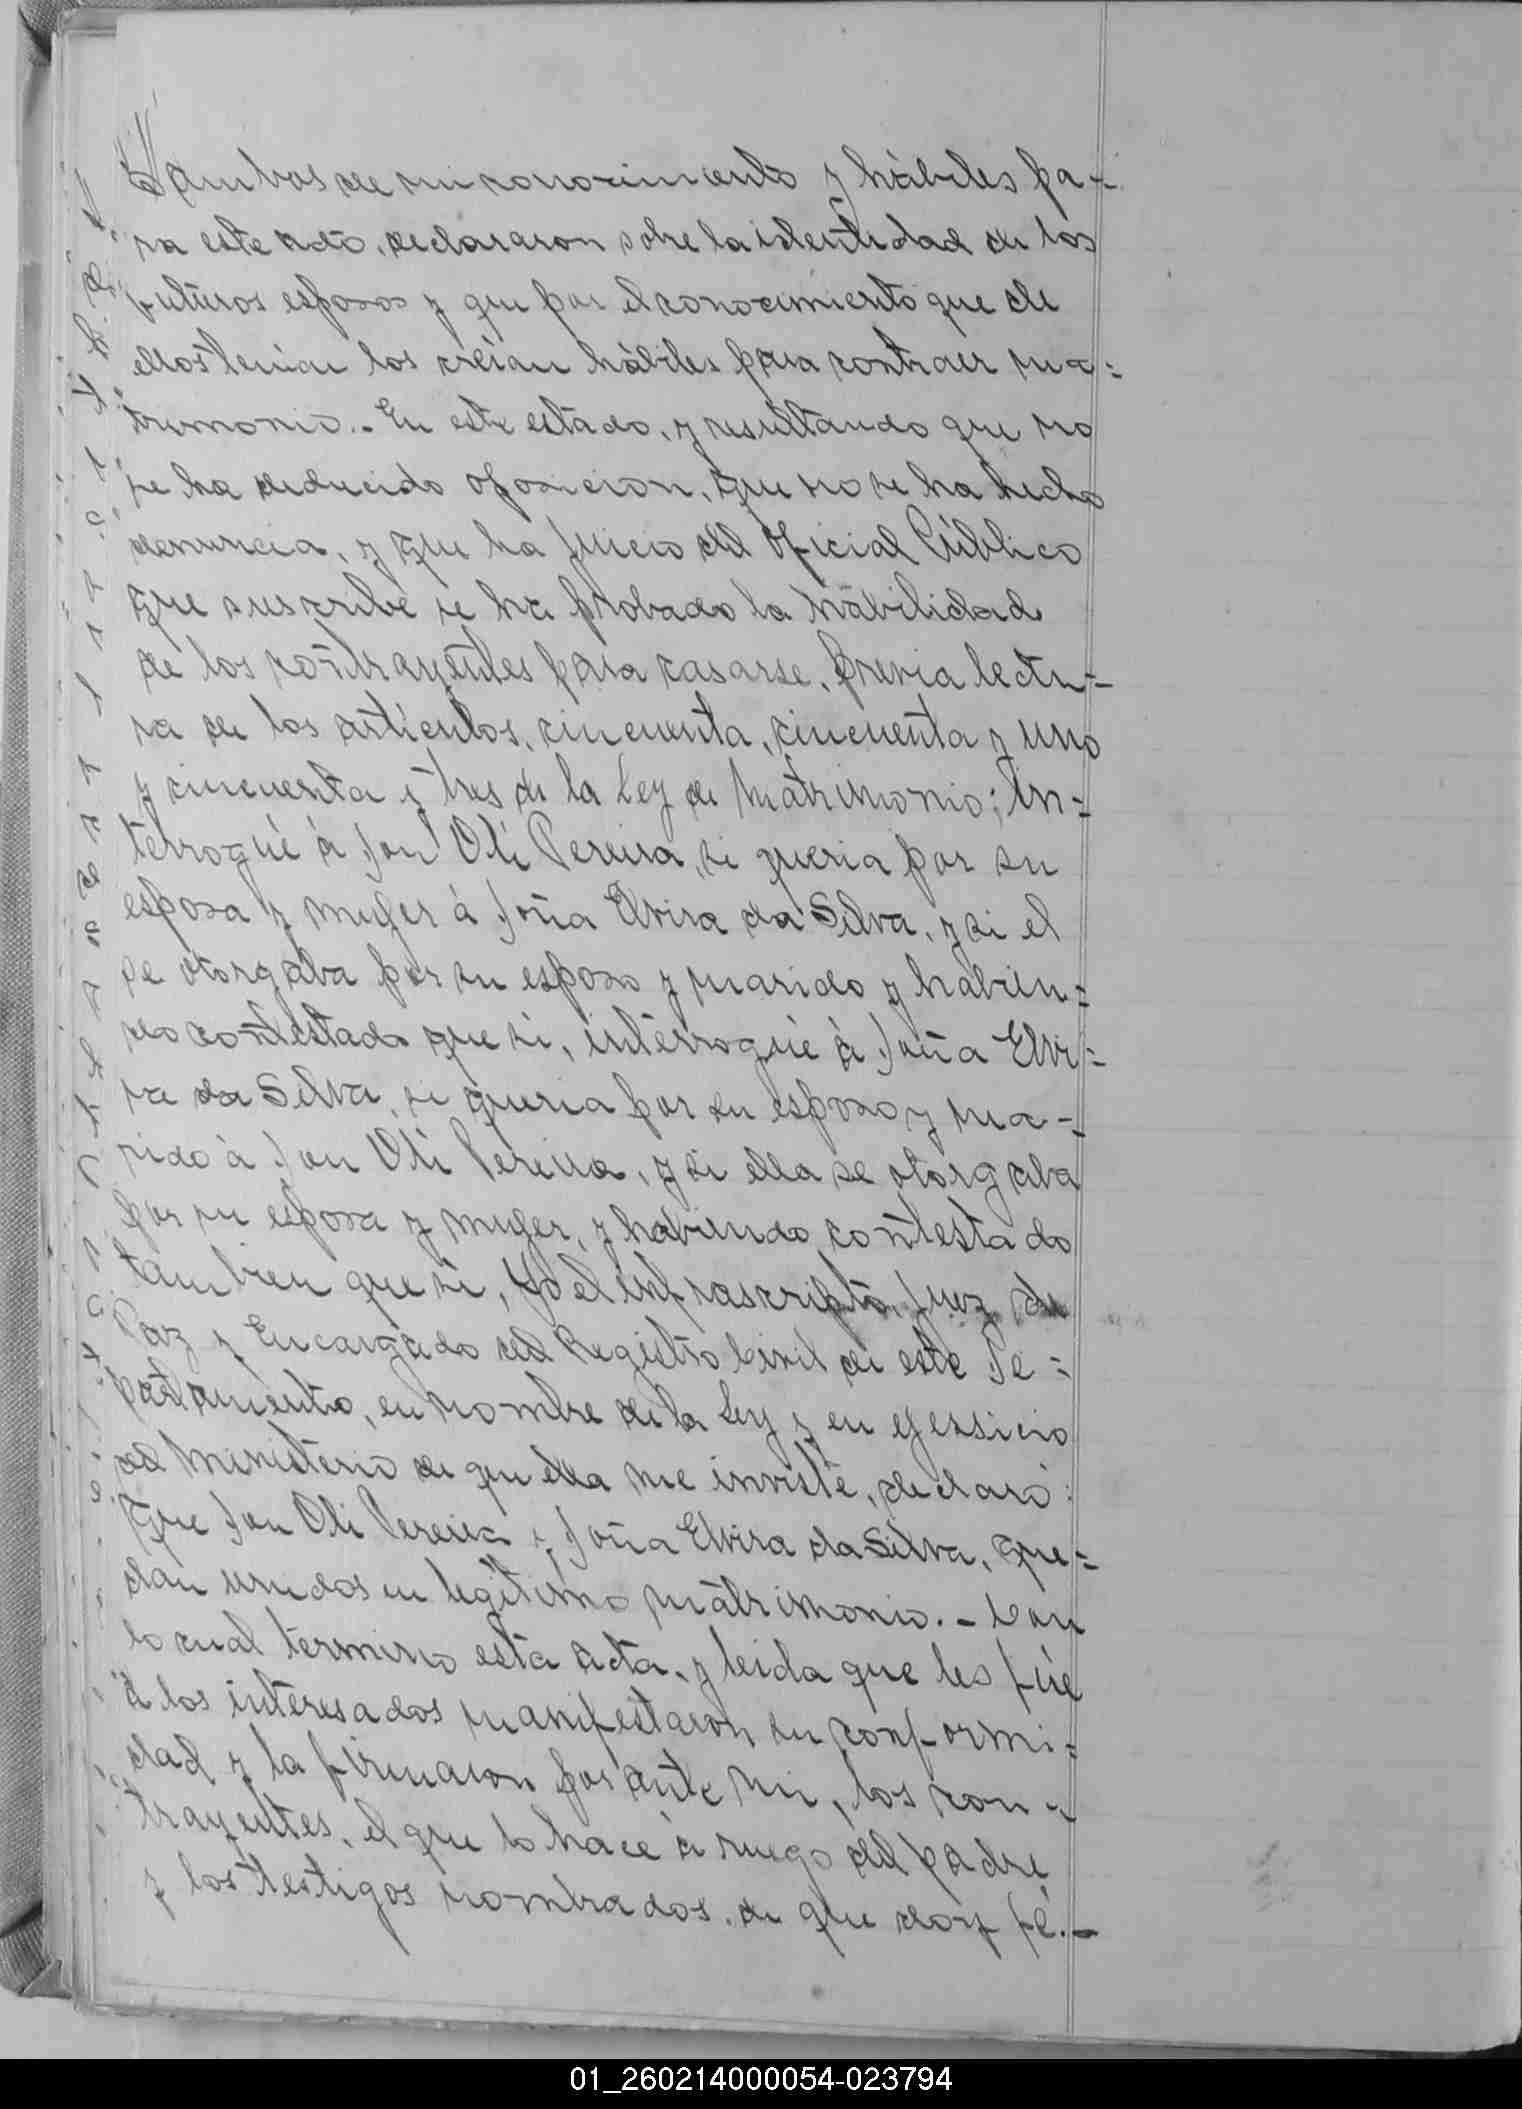 ambos de mi conocimiento y hábiles pa-
ra este acto, declararon sobre la identidad de los
futuros esposos y que por el conocimiento que de
ellos tenian los creian hábiles para contraer ma=
trimonio.- En este estado, y resultando que no
se ha deducido oposicion, que no se ha hecho
denuncia, y que ha juicio del Oficial Público
que suscribe se ha probado la habilidad
de los contrayentes para casarse, previa lectu-
ra de los artículos, cincuenta, cincuenta y uno
y cincuenta y tres de la Ley de Matrimonio; in=
terrogué á Don Oli Pereira, si queria por su
esposa y muger á Doña Elvira da Silva, y si el
se otorgaba por su esposo y marido y habien=
do contestado que si, interrogué á Doña Elvi=
ra da Silva, si queria por su esposo y ma-
rido á Don Oli Pereira, y si ella se otorgaba
por su esposa y muger, y habiendo contestado
tambien que si, Yo el infrascripto, Juez de
Paz y Encargado del Registro Civil de este De=
partamento, en nombre de la Ley y en ejersicio
del Ministerio de que ella me inviste, declaró:
que Don Oli Pereira y Doña Elvira da Silva, que=
dan unidos en legítimo matrimonio.- Con
lo cual termino esta acta, y leida que les fué
á los interesados manifestaron su conformi=
dad y la firmaron por ante mi, los con-
trayentes, el que lo hace á ruego del padre
y los testigos nombrados. de que doy fé.-
01_260214000054-023794